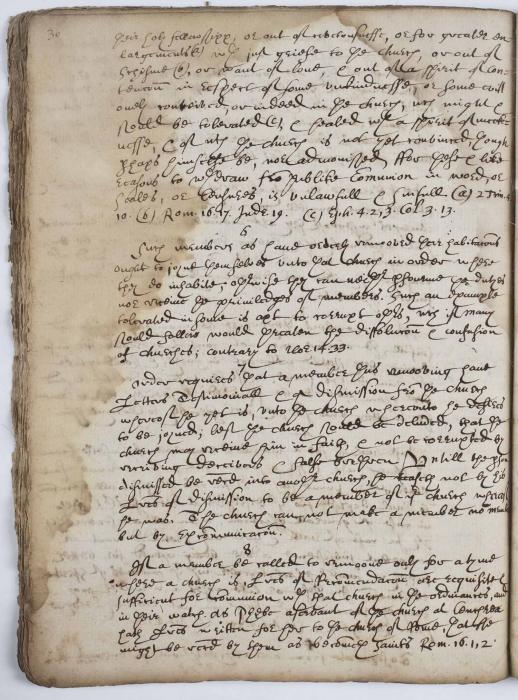 30
their holy fellowshipp, or out of covetousnesse, or for greater en-
largements (b) wth just griefe to the church, or out of
Schisme (b), or want of love, & out of a spirit of Con-
tention in respect of some unkindnesse, or some evill
only conceived, or indeed in the Church, wch might &
should be tolerated (c), & healed wth a spirit of meek-
nesse, & of wch the church is not yet convinced, though
phaps himselfe be, nor admonished, ffor these & like
reasons to withdraw fro publike Communion in word, or
Seales, or Censures, is unlawfull & sinfull. (a) 2 Tim. 4
10. (b) Rom. 16. 17. Jude. 19. (c) Eph. 4. 2, 3. Col. 3. 13.
6
Such members as have orderly removed their habitations
ought to joyne themselves unto that church in order where
they do inhabite, otherwise they can neithr pforme the dutyes
nor receive the priviledges of members. Such an example
tolerated in some is apt to corrupt othrs; wch if many
should follow would threaten the dissolution & confusion
of churches; contrary to 1Cor. 14. 33.
7
Order requires that a member thus removeing have
Letters Testimoniall & of dismission fro the church
whereof he yet is, unto the church whereunto he desires
to be joyned; lest the church should be deluded, that the
church may receive him in faith, & not be corrupted by
receiving deceivers & false brethren. Untill the pson
dismissed be recd into anothr church, he ceaseth not by his
Lres of dismission to be a member of ye church whereof
he was. The church can not make a member no member
but by Excommunication.
8
If a member be called to remoove only for a tyme
where a church is, Lres of Recommendation are requisite &
sufficient for communion wth that church in the ordinances, and
in their watch. As Phebe a servant of the church at Cenchrea
had Lres written for her to the church of Rome, that she
might be recd by them as becometh saints Rom. 16. 1, 2.